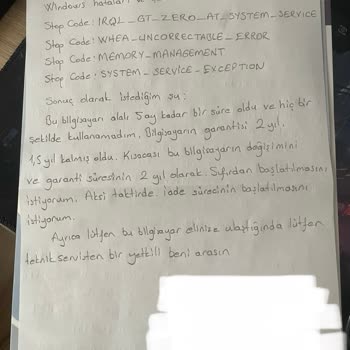 Windows hataları
Stop Code: IRQL_GT_ZERO_AT_SYSTEM_SERVICE
Stop Code: WHEA_UNCORRECTABLE_ERROR
Stop Code: MEMORY_MANAGEMENT
Stop Code: SYSTEM_SERVICE_EXCEPTION
Sonuç olarak istediğim şu:
Bu bilgisayarı alalı 5 ay kadar bir süre oldu ve hiç bir
şekilde kullanamadım. Bilgisayarın garantisi 2 yıl.
1,5 yıl kalmış oldu. Kısacası bu bilgisayarın değişimini
ve garanti süresinin 2 yıl olarak Sıfırdan başlatılmasını
istiyorum. Aksi taktirde, iade sürecinin başlatılmasını
istiyorum.
Ayrıca lütfen bu bilgisayar elinize ulaştığında lütfen
teknik servisten bir yetkili beni arasın